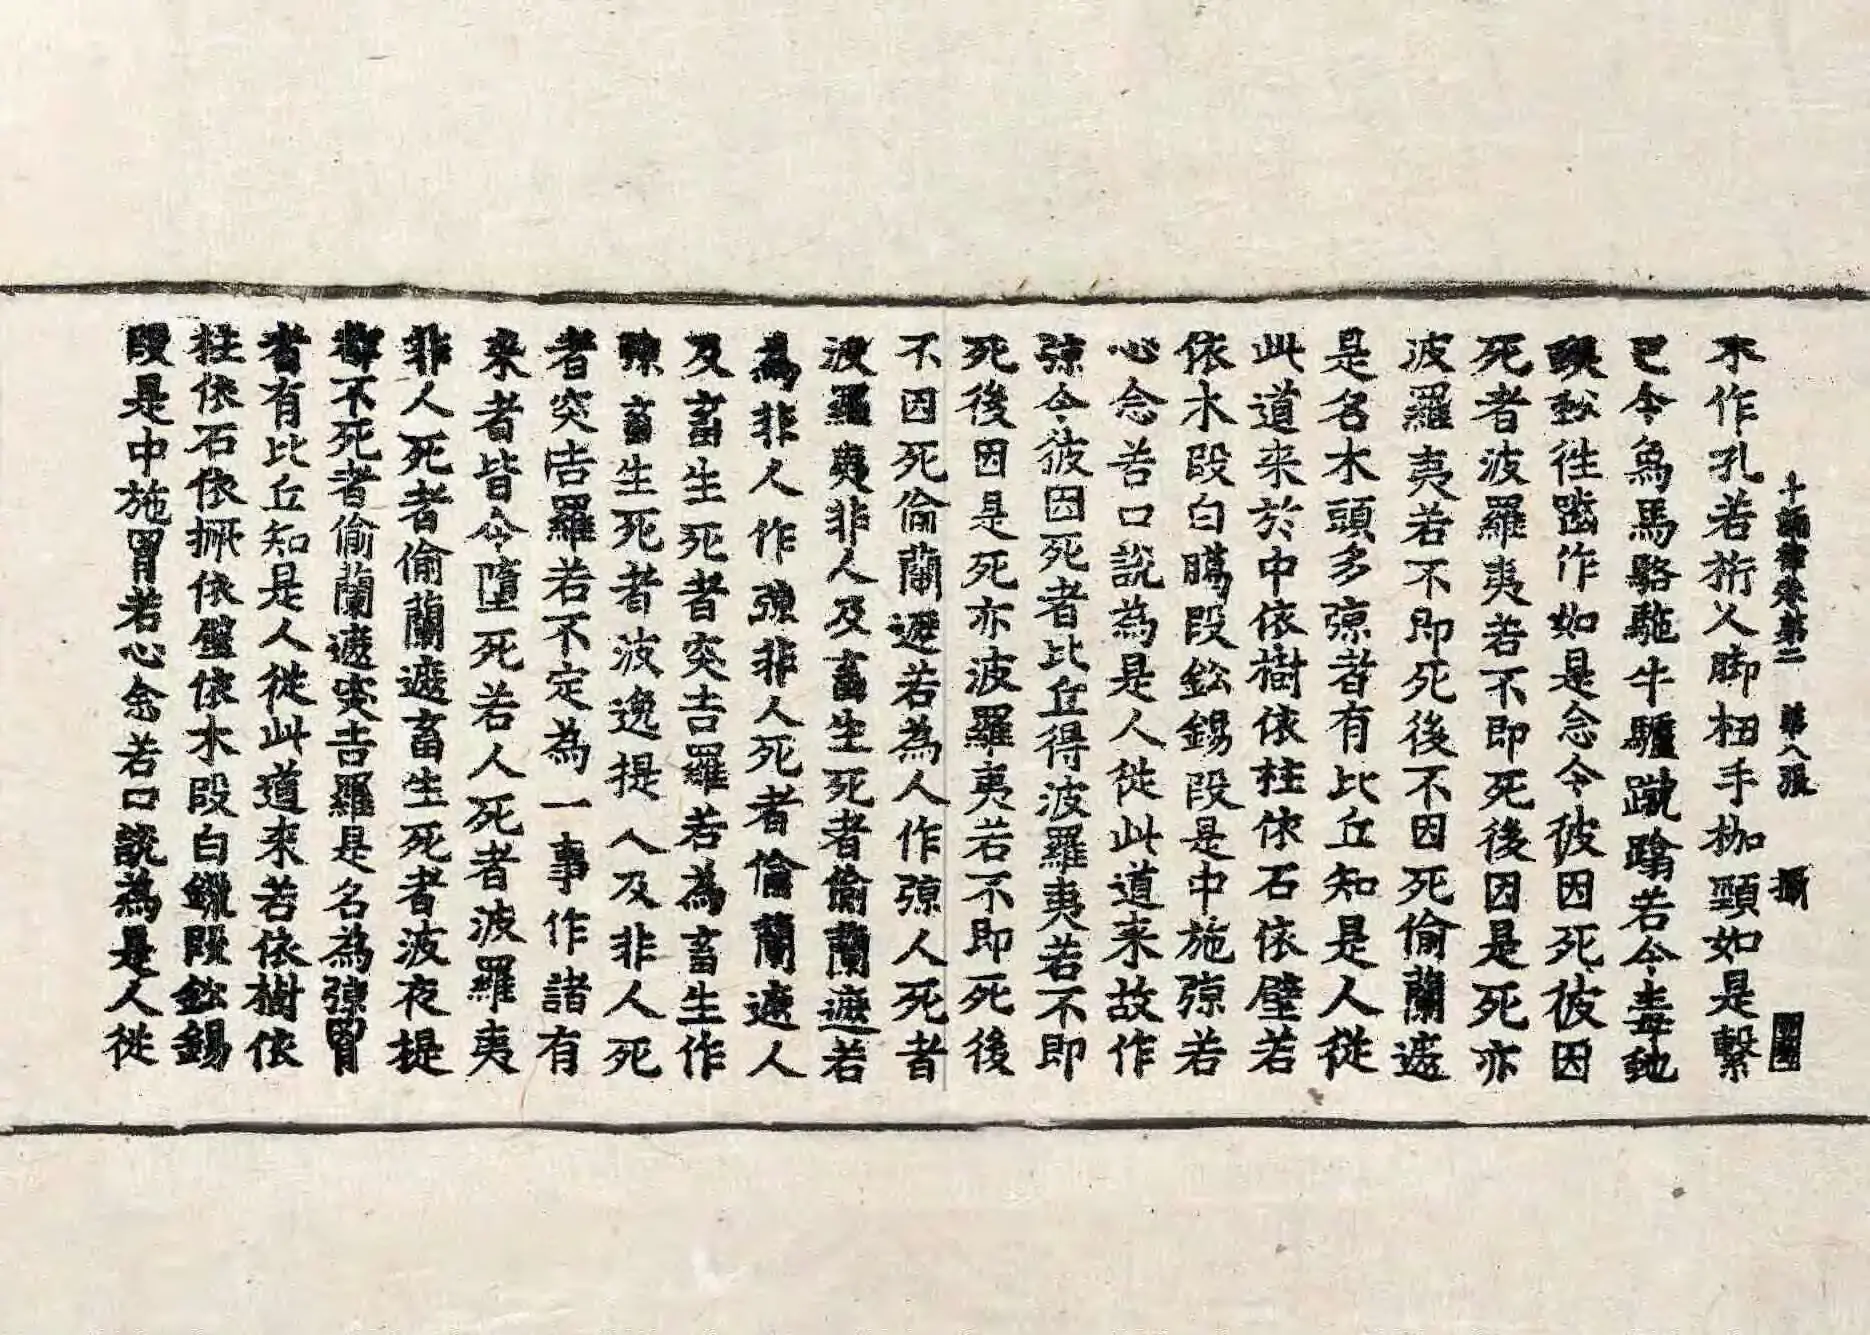 十誦律卷第二 第八張 攝
木作孔若桁乂脚杻手枷頸如是繫
已令烏馬駱駞牛驢蹴蹹若令毒虵
蜈蚣徃齧作如是念令彼因死彼因
死者波羅夷若不即死後因是死亦
波羅夷若不即死後不因死偷蘭遮
是名木頭多弶者有比丘知是人從
此道来於中依樹依柱依石依壁若
依木段白鑞段鈆錫段是中施弶若
心念若口說為是人從此道来故作
弶令彼因死者比丘得波羅夷若不即
死後因是死亦波羅夷若不即死後
不因死偷蘭遮若為人作弶人死者
波羅夷非人及畜生死者偷蘭遮若
為非人作弶非人死者偷蘭遮人
及畜生死者突吉羅若為畜生作
弶畜生死者波逸提人及非人死
者突吉羅若不定為一事作諸有
来者皆令墮死若人死者波羅夷
非人死者偷蘭遮畜生死者波夜提
都不死者偷蘭遮突吉羅是名為弶罥
者有比丘知是人從此道来若依樹依
柱依石依橛依壁依木段白鑞段鈆錫
段是中施罥若心念若口說為是人從